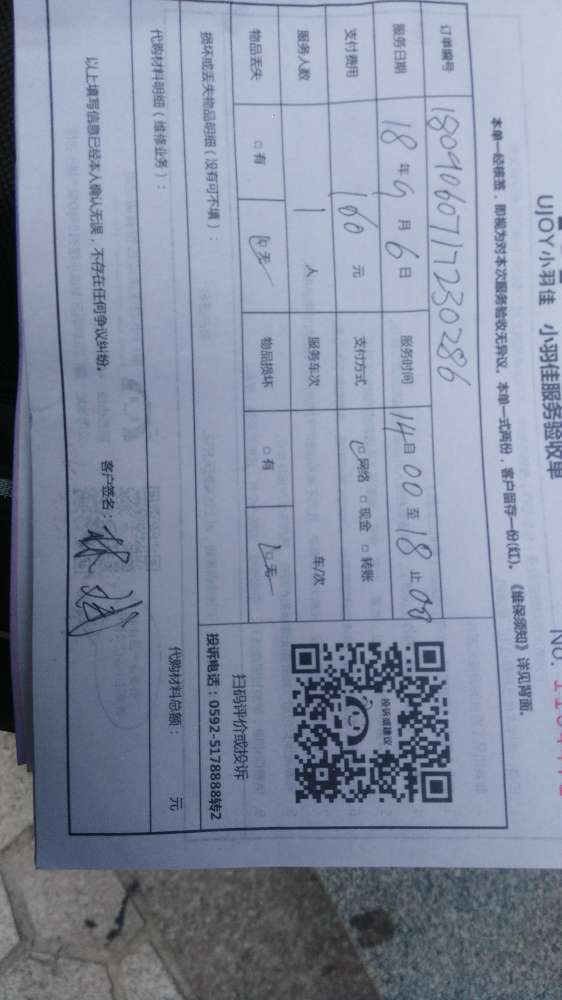 UJOY小羽佳 小羽佳服务验收单
NO.
本单一经核签，即视为对本次服务验收无异议。本单一式两份，客户留存一份(红)。《维保须知》详见背面。
订单编号 1809060717230286
服务日期 18年9月6日 服务时间 14自00至18止00
支付费用 160元 支付方式 ☑网络 □现金 □转账
服务人数 1人 服务车次 车/次
物品丢失 □有 ☑无 物品损坏 □有 ☑无
扫码评价或投诉
投诉电话：0592-5178888转2
投诉或建议
损坏或丢失物品明细（没有可不填）：
代购材料明细（维修业务）：
代购材料总额： 元
以上填写信息已经本人确认无误，不存在任何争议纠纷。 客户签名：林